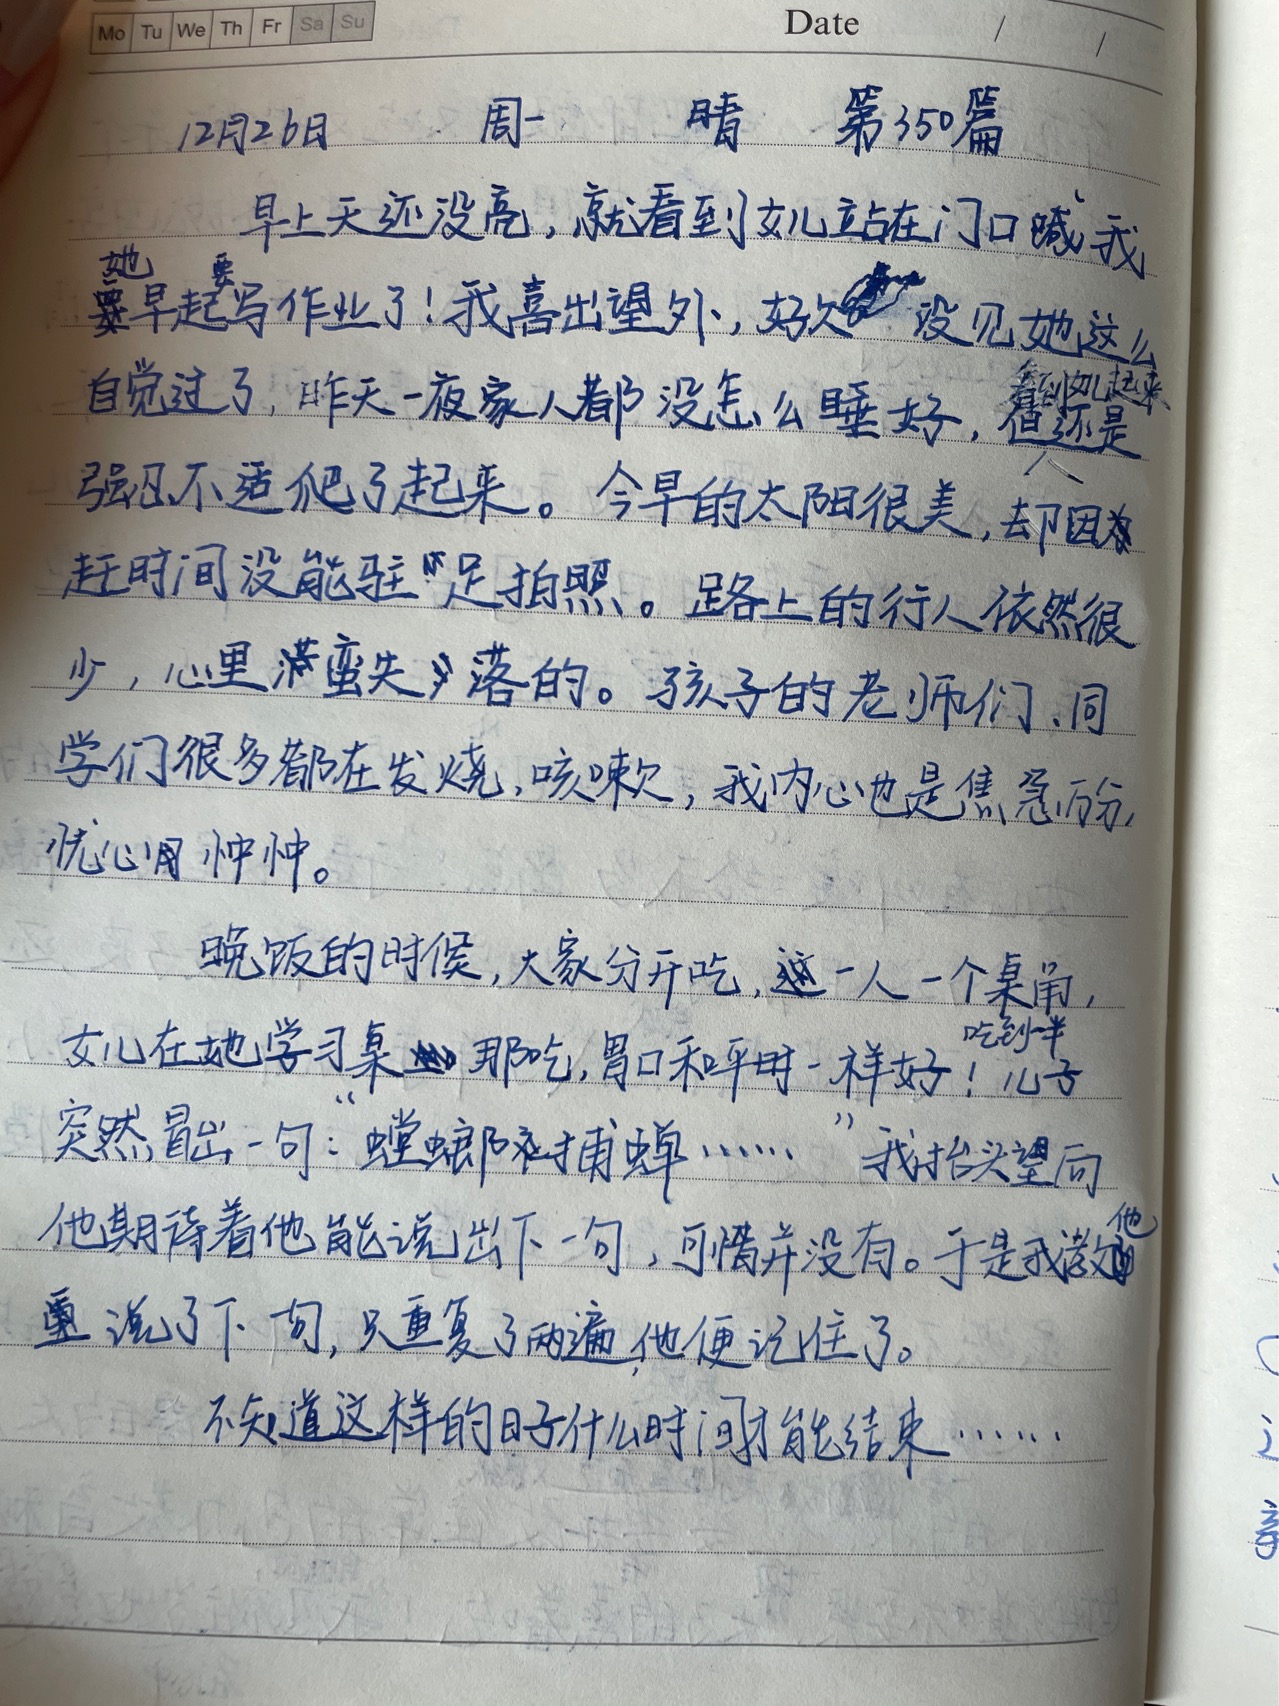 Mo Tu We Th Fr Sa Su
Date / /
12月26日 周一 晴 第350篇
早上天还没亮，就看到女儿站在门口喊我
她要早起写作业了！我喜出望外，好久没见她这么
自觉过了，昨天一夜家人都没怎么睡好，看到女儿起来但还是
强忍不适爬了起来。今早的太阳很美，却因为
赶时间没能驻足拍照。路上的行人依然很
少，心里满蛮失落的。孩子的老师们、同
学们很多都在发烧，咳嗽，我内心也是焦急万分，
忧心忡忡。
晚饭的时候，大家分开吃，一人一个桌角，
女儿在她学习桌那吃，胃口和平时一样好！吃到一半儿子
突然冒出一句：“螳螂捕蝉……”我抬头望向
他期待着他能说出下一句，可惜并没有。于是我教他
说了下句，只重复了两遍，他便记住了。
不知道这样的日子什么时间才能结束……